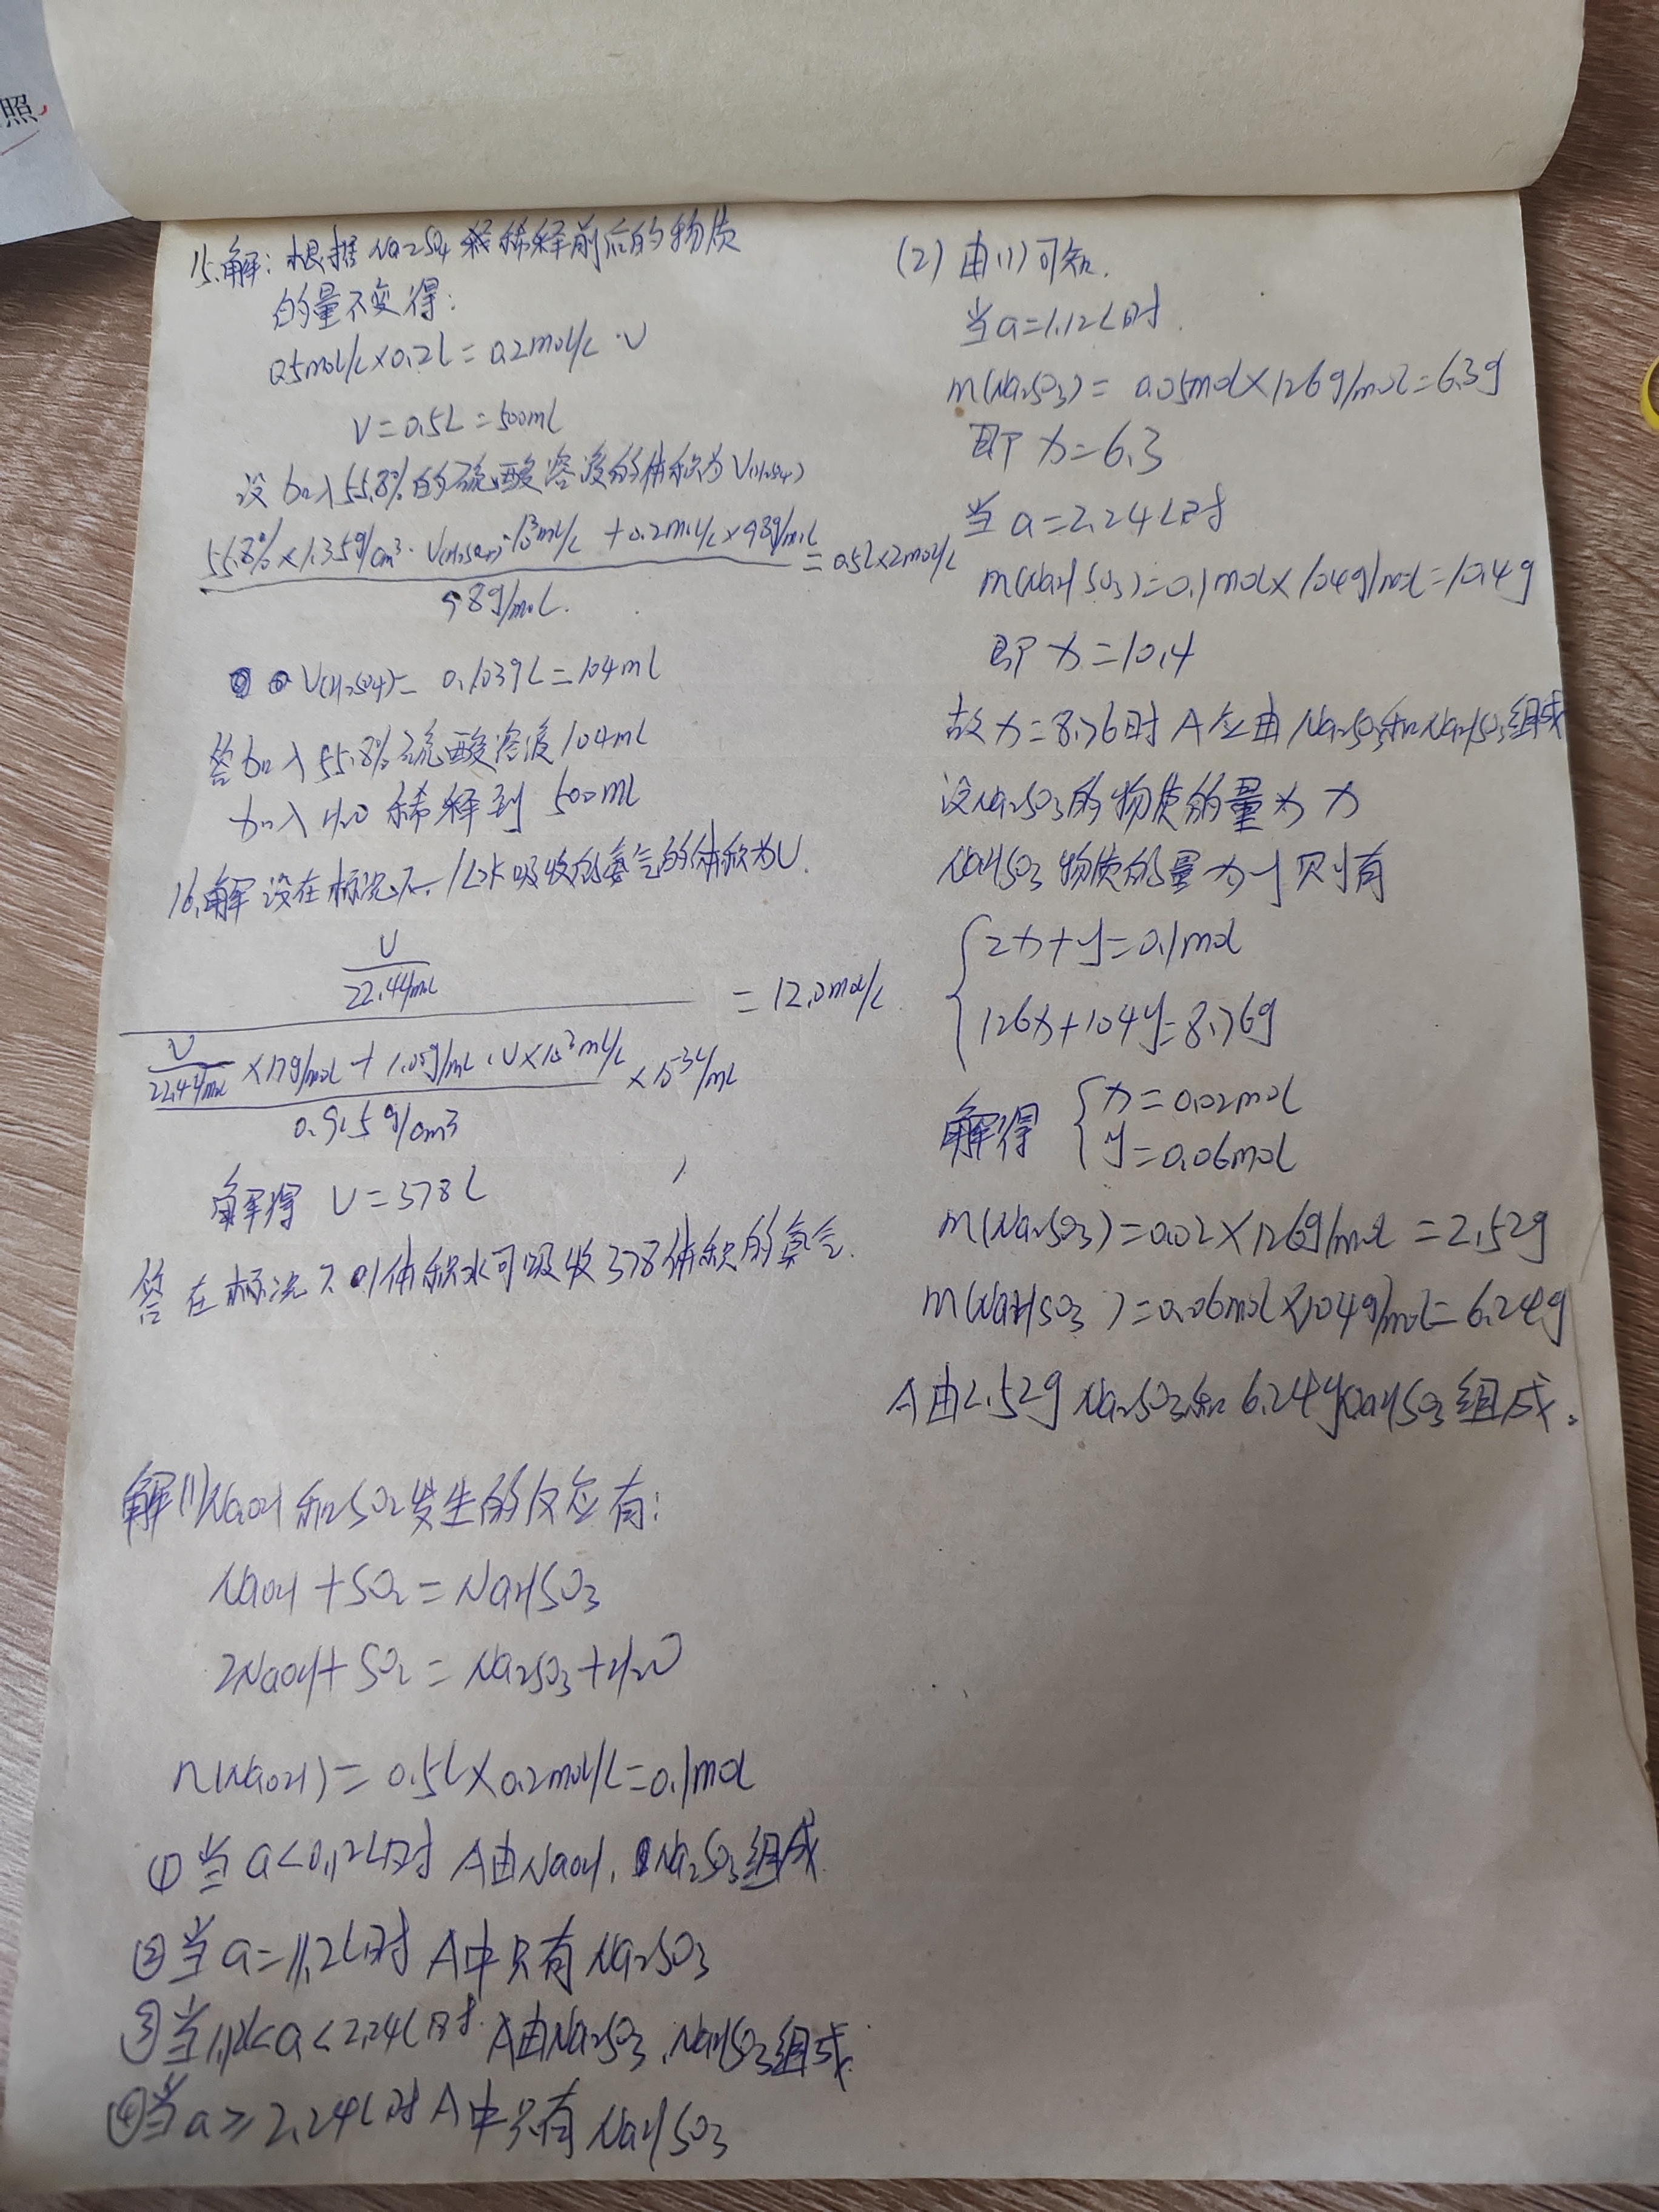 照
15.解:根据Na2SO4稀释前后的物质
的量不变得:
0.5mol/L×0.2L=0.2mol/L·V
V=0.5L=500mL
设加入55.8%的硫酸溶液的体积为V(H2SO4)
55.8%×1.35g/cm3·V(H2SO4)·10^3mL/L+0.2mol/L×98g/moL
=0.5L×2mol/L
98g/moL.
V(H2SO4)=0.1039L=104mL
答加入55.8%硫酸溶液104mL
加入H2O稀释到500mL
16.解设在标况下,1L水吸收的氨气的体积为V.
V
22.4L/moL
=12.0mol/L
V
22.4L/moL
×17g/mol+1.0g/mL·V×10^3mL/L
×10^-3L/mL
0.915g/cm3
解得 V=378L
答 在标况下 1体积水可吸收378体积的氨气.
解(1)NaOH和SO2发生的反应有:
NaOH+SO2=NaHSO3
2NaOH+SO2=Na2SO3+H2O
n(NaOH)=0.5L×0.2mol/L=0.1mol
①当a<0.12L时 A由NaOH,Na2SO3组成
②当a=1.12L时 A中只有Na2SO3
③当1.12<a<2.24L时.A由Na2SO3、NaHSO3组成.
④当a≥2.24L时A中只有NaHSO3
(2)由(1)可知.
当a=1.12L时.
m(Na2SO3)=0.05mol×126g/mol=6.3g
即x=6.3
当a=2.24L时
m(NaHSO3)=0.1mol×104g/mol=10.4g
即x=10.4
故x=8.76时A应由Na2SO3和NaHSO3组成
设Na2SO3的物质的量为x
NaHSO3物质的量为y则有
2x+y=0.1mol
126x+104y=8.76g
解得 x=0.02mol
y=0.06mol
m(Na2SO3)=0.02×126g/mol=2.52g
m(NaHSO3)=0.06mol×104g/mol=6.24g
A由2.52gNa2SO3和6.24gNaHSO3组成.